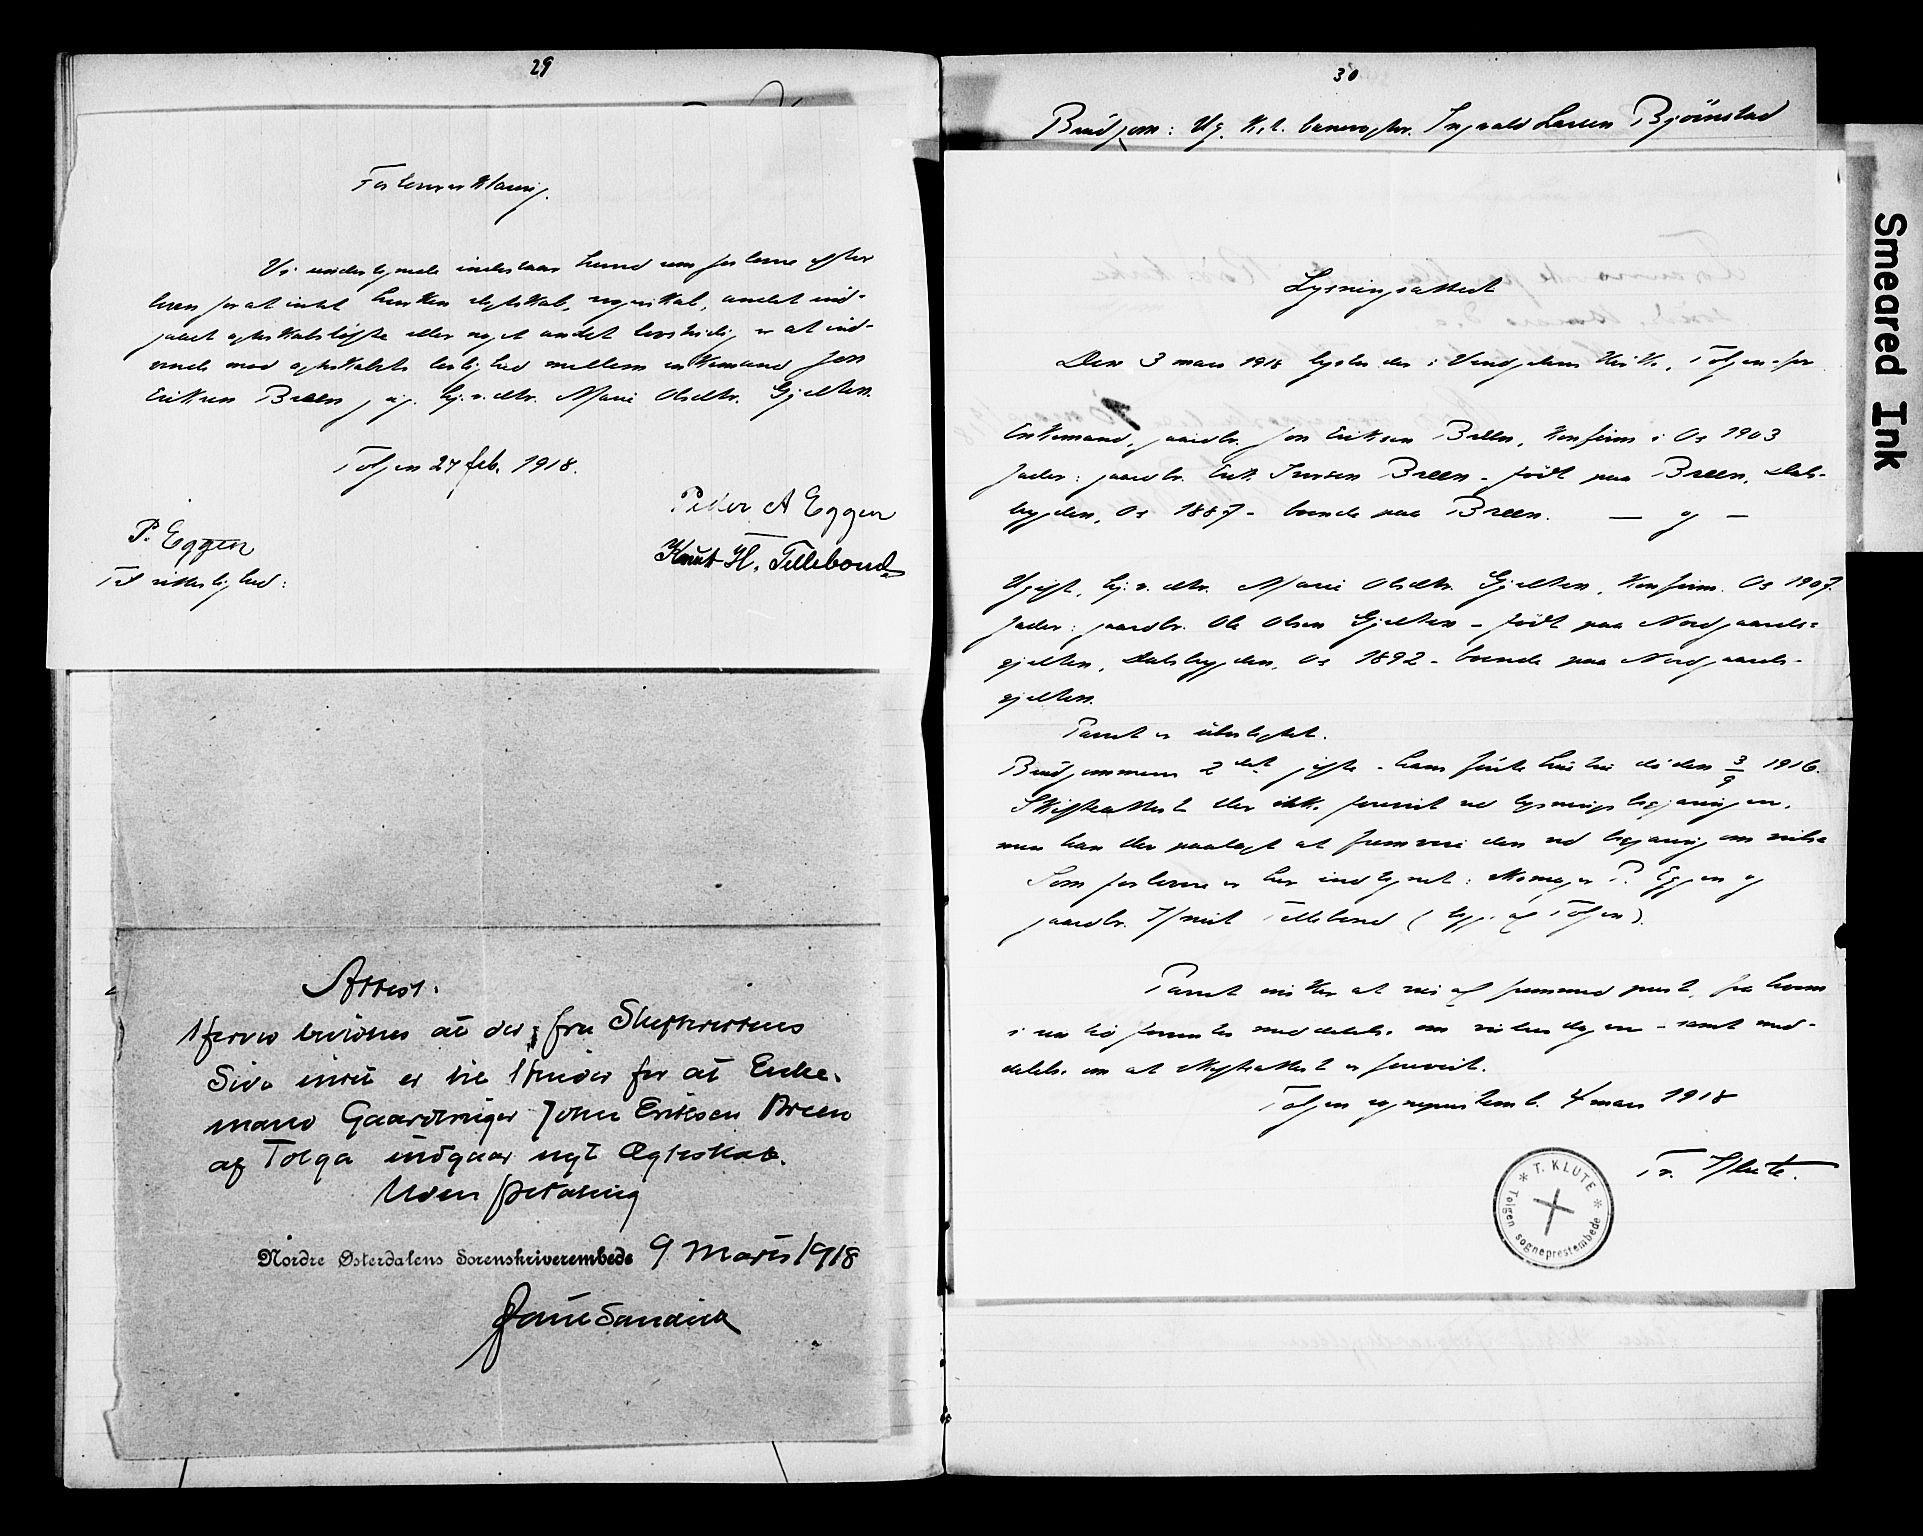 29
Forlovererklæring.
Vi undertegnede indestaar herved som forlovere efter
loven for at intet hverken slegtskab, svogerskab, andet ind-
gaaet egteskabsløfte eller noget andet lovstridig er at ind-
vende mod egteskabets lovlighed mellem enkemand Jon
Eriksen Breen og pg. Marie Olsdtr. Gjelten.
Tolgen 27 feb. 1918.
Peder A Eggen
P. Eggen
Knut H. Tellebond
Til vitterlighed:
Attest.
Herved bevidnes at der fra Skifterettens
Side intet er til Hinder for at Enke-
mand Gaardbruger John Eriksen Breen
af Tolga indgaar nyt Ægteskab.
Uden betaling
Nordre Østerdalens Sorenskriverembede 9 Marts 1918
30
Brudgom: Ug. Ingvald Larsen Bjørnstad
Lysningsattest
Den 3 mars 1918 lystes der i Vingelens kirke, Tolgen for
Enkemand, gaardbr. Jon Eriksen Breen, konfirm. i Os 1903
fader: gaardbr. Erik Iversen Breen - født paa Breen, Dals-
bygden, Os 1887 - boende paa Breen. — og —
Ugift, Marie Olsdtr. Gjelten, konfirm. Os 1907.
fader: gaardbr. Ole Olsen Gjelten - født paa Nordgaards-
gjelten, Dalsbygden, Os 1892 - boende paa Nordgaards-
gjelten.
Parret er ubeslegtet.
Brudgommens 2det gifte - hans første hustru døde den 3/9 1916.
Skifteattest blev ikke forevist ved lysningsbegjæringen,
men han blev paalagt at fremvise den ved begjæring om vielse
Som forlovere er her indtegnet: P. Eggen og
gaardbr. Knut Tellebond (begge af Tolgen).
Parret ønsker at vies af fremmed prest, fra hvem
i sin tid forventes meddelelse om vielsesdagen - samt med-
delelse om at skifteattest er forevist.
Tolgen sogneprestemb. 4 mars 1918
Tr. Klute.
* T. KLUTE *
Tolgen sogneprestembede
Smeared Ink